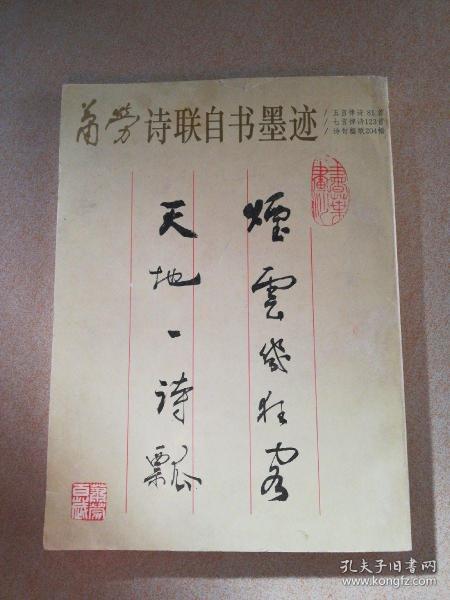 萧劳诗联自书墨迹
/五言律诗81首
/七言律诗123首
/诗句楹联204幅
烟云几狂客
天地一诗瓢
孔夫子旧书网
www.kongfz.com